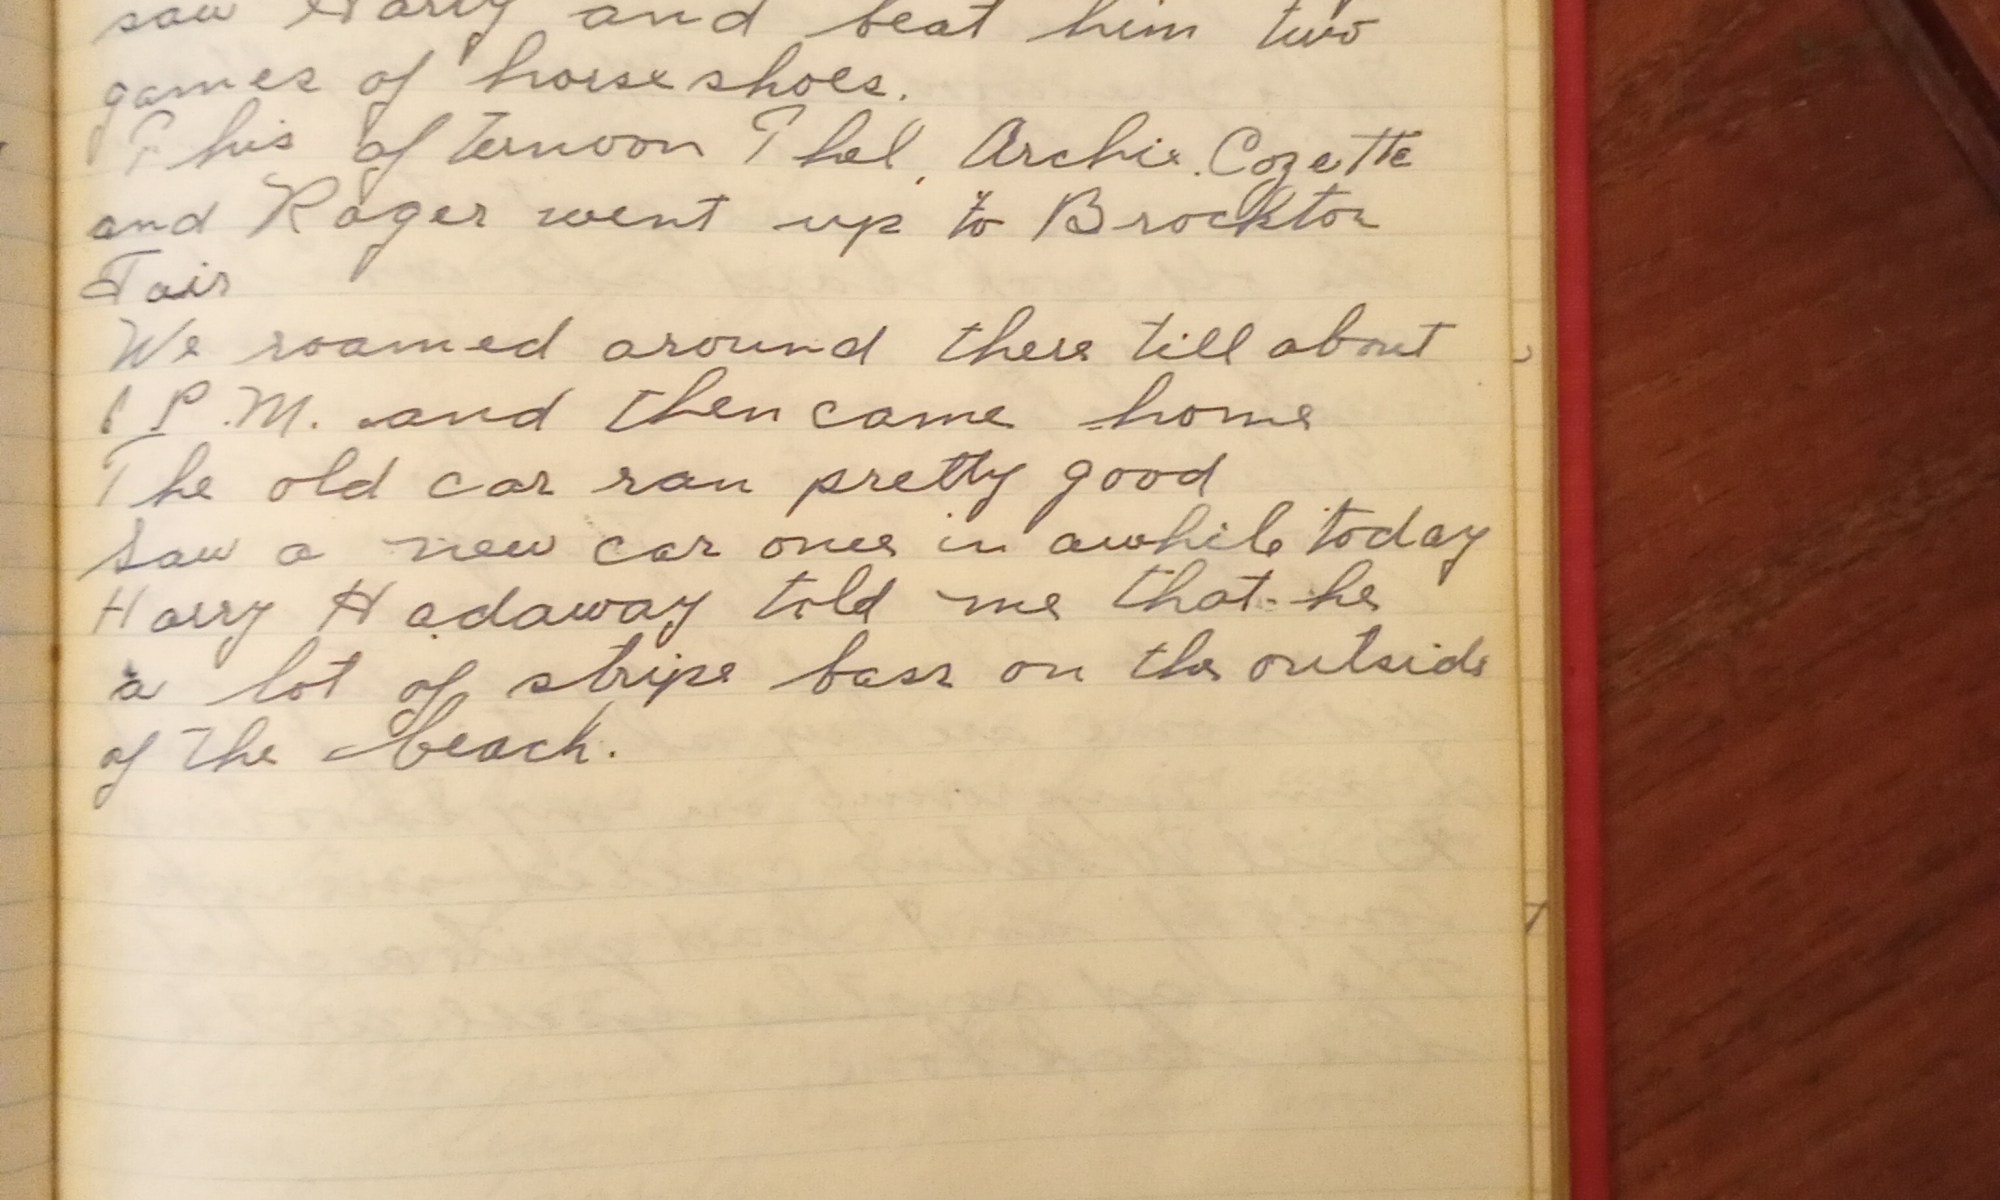 saw Harry and beat him two
games of horse shoes.
This afternoon Thel, Archie. Cozette
and Roger went up to Brockton
Fair
We roamed around there till about
1 P.M. and then came home
The old car ran pretty good
Saw a new car once in awhile today
Harry Hadaway told me that he
a lot of stripe bass on the outside
of the beach.